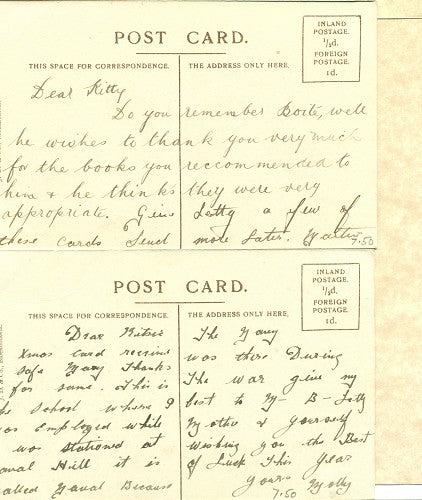 POST CARD.
INLAND
POSTAGE.
½d.
FOREIGN
POSTAGE.
1d.
THIS SPACE FOR CORRESPONDENCE.
THE ADDRESS ONLY HERE.
Dear Kitty
Do you remember Boité, well
he wishes to thank you very much
for the books you reccommended to
him & he thinks they were very
appropriate. Give Letty a few of
these cards Send more Later. Walter
7.50
POST CARD.
INLAND
POSTAGE.
½d.
FOREIGN
POSTAGE.
1d.
THIS SPACE FOR CORRESPONDENCE.
THE ADDRESS ONLY HERE.
Dear Kitsie
Xmas card received
safe Many Thanks
for same. This is
he School where I
was employed while
was stationed at
aval Hill it is
alled Naval Because
The Navy
was there During
The war give my
best to M- B- Letty
Mother & yourself
wishing you the Best
of Luck This year
yours Molly
7.50